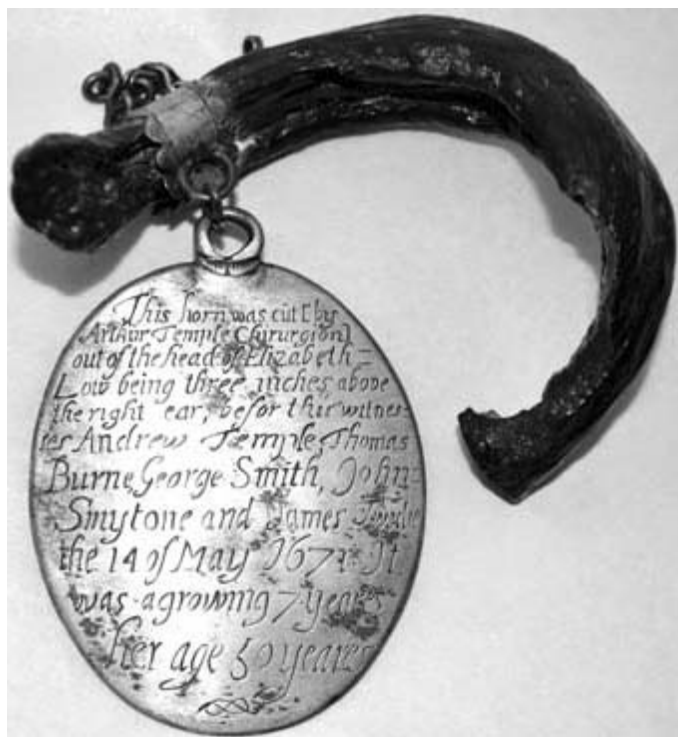 This horn was cut [by
Arthur Temple Chirurgion]
out of the head of Elizabeth =
Low being three inches above
the right ear, befor thir witnes-
ses Andrew Temple Thomas
Burne, George Smith, John-
Smytone and James
the 14 of May 1671. It
was agrowing 7 years
her age 50 yeares